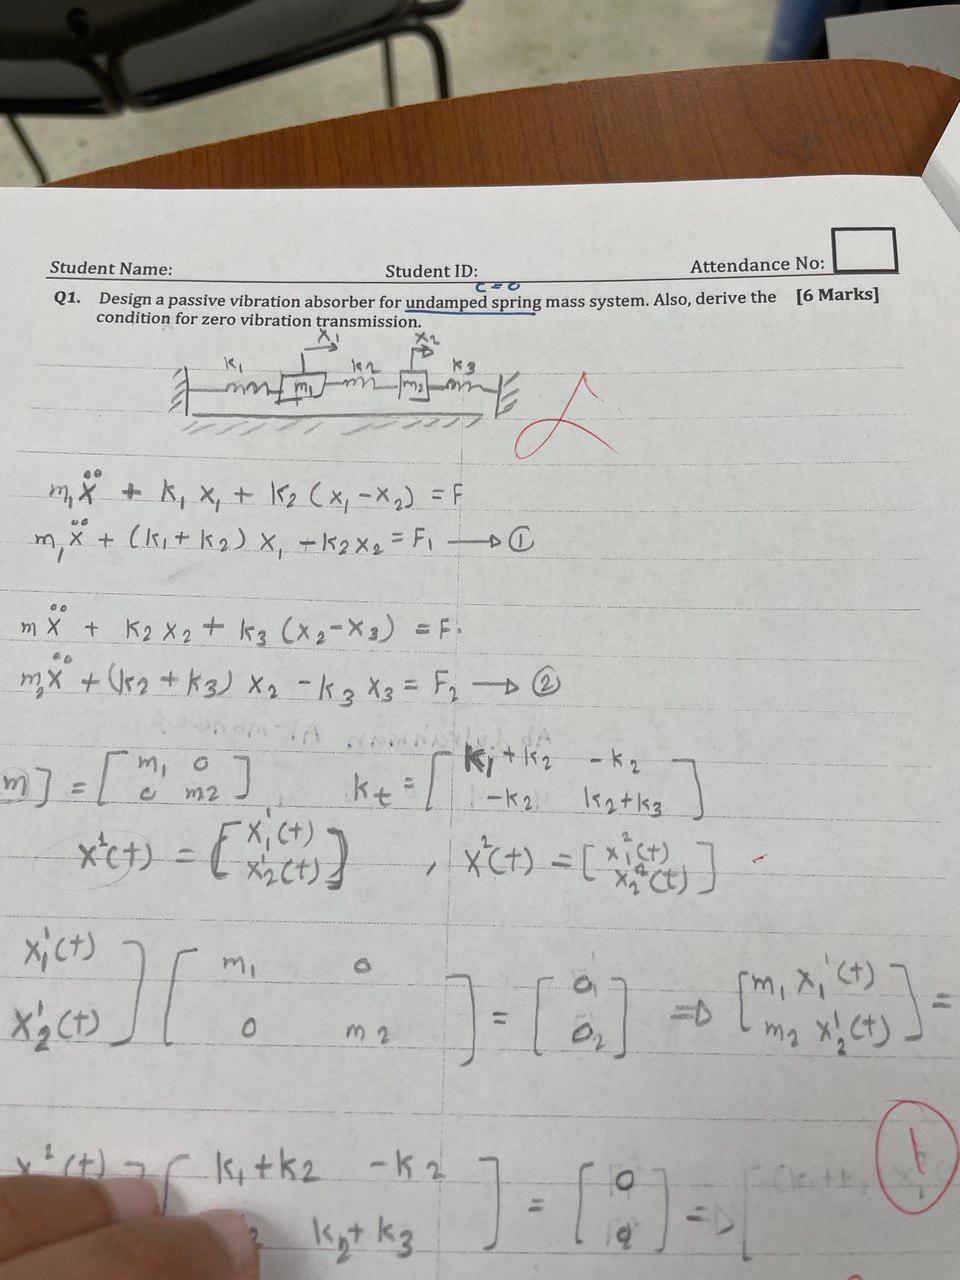 Student Name: Student ID: Attendance No:
c = 0
Q1. Design a passive vibration absorber for undamped spring mass system. Also, derive the [6 Marks]
condition for zero vibration transmission.
x₁ x₂
k₁ k₂ k₃
m₁ m₂
m₁ẍ + k₁ x₁ + k₂ (x₁-x₂) = F
m₁ẍ + (k₁+k₂) x₁ -k₂x₂ = F₁ → ①
mẍ + k₂x₂ + k₃ (x₂-x₃) = F.
m₂ẍ + (k₂+k₃) x₂ - k₃ x₃ = F₂ → ②
m] = [m₁ 0 kt = [k₁+k₂ -k₂
c m2] -k₂ k₂+k₃]
x²(t) = [x₁'(t) , x²(t) = [x₁²(t)
x₂'(t)] x₂²(t)]
x₁'(t) ] [ m₁ 0 ] = [ 0₁ ] ⇒ [ m₁ x₁'(t) ] =
x₂'(t) 0 m₂ 0₂ m₂ x₂'(t)
x²(t) ] [ k₁+k₂ -k₂ ] = [ 0 ] ⇒ [
2 k₂+k₃ 0
1